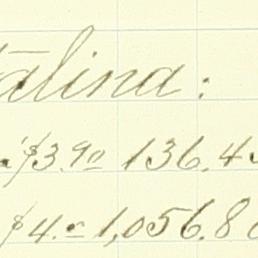 talina:
$3.90 136.45
$4.- 1,056.80